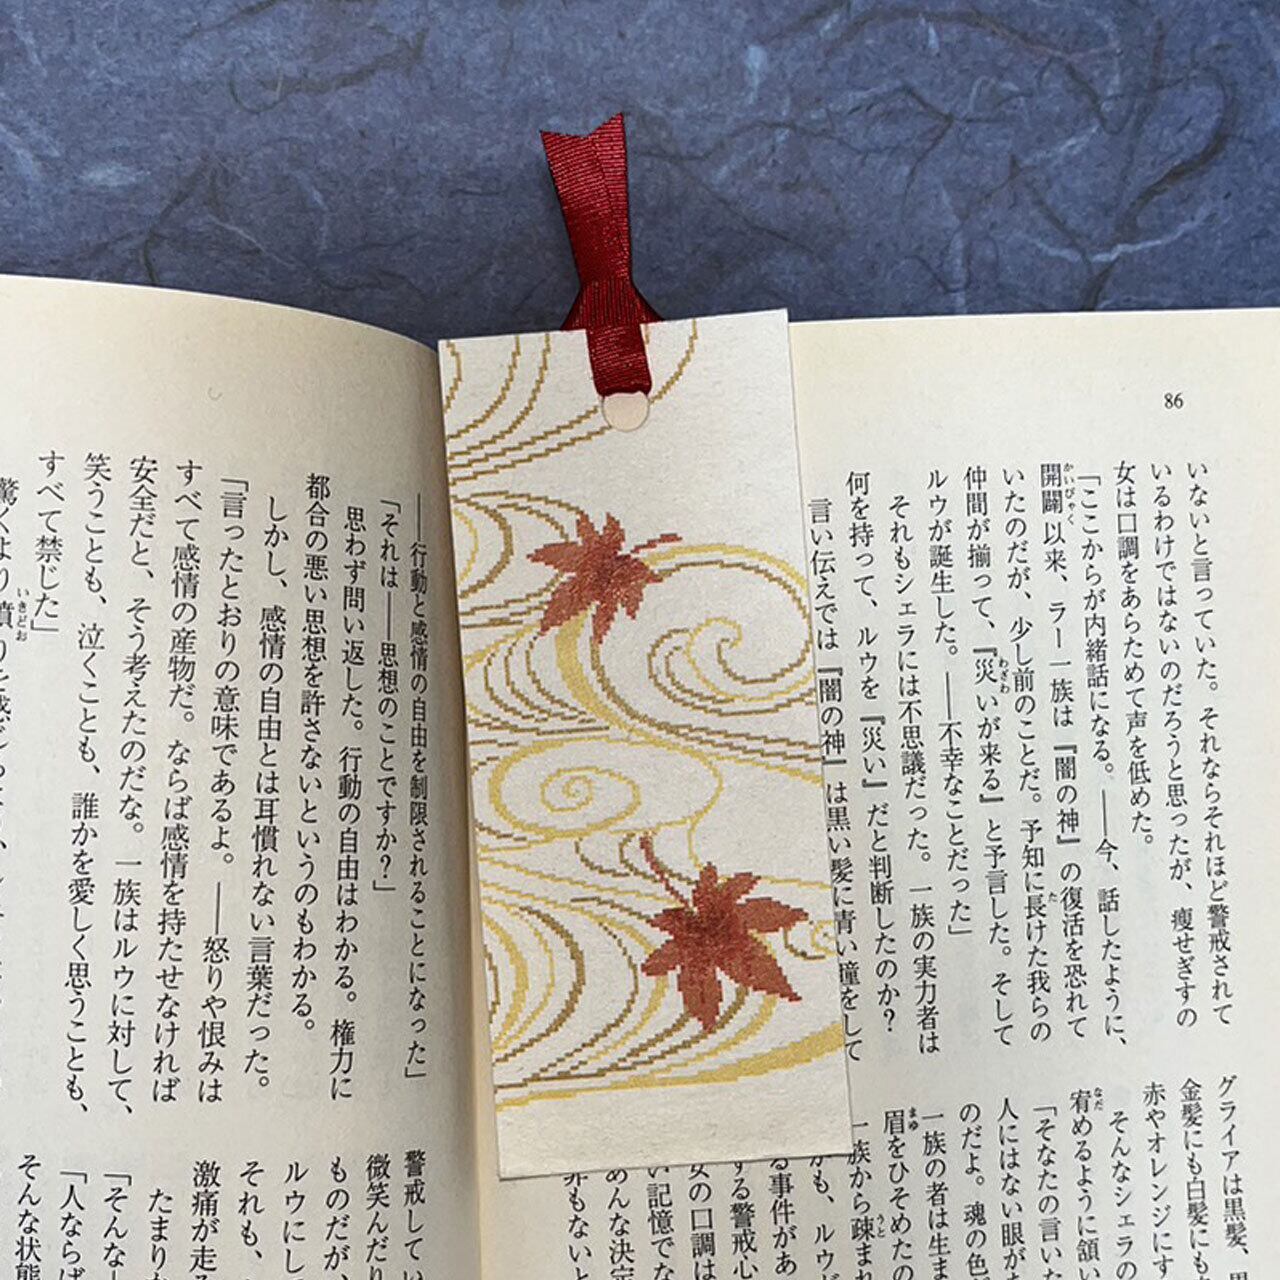 86
いないと言っていた。それならそれほど警戒されて
いるわけではないのだろうと思ったが、痩せぎすの
女は口調をあらためて声を低めた。
「ここからが内緒話になる。――今、話したように、
開闢以来、ラー一族は『闇の神』の復活を恐れて
かいびゃく
いたのだが、少し前のことだ。予知に長けた我らの
た
仲間が揃って、『災いが来る』と予言した。そして
わざわ
ルウが誕生した。――不幸なことだった」
それもシェラには不思議だった。一族の実力者は
何を持って、ルウを『災い』だと判断したのか?
言い伝えでは『闇の神』は黒い髪に青い瞳をして
グライアは黒髪、
金髪にも白髪にも
赤やオレンジにす
そんなシェラの
宥めるように頷い
なだ
「そなたの言いた
人にはない眼が
のだよ。魂の色
一族の者は生ま
眉をひそめたの
まゆ
一族から疎まれ
うと
も、ルウ
る事件があ
する警戒心
女の口調は
い記憶でな
あんな決定
非もないと
――行動と感情の自由を制限されることになった」
「それは――思想のことですか?」
思わず問い返した。行動の自由はわかる。権力に
都合の悪い思想を許さないというのもわかる。
しかし、感情の自由とは耳慣れない言葉だった。
「言ったとおりの意味であるよ。――怒りや恨みは
すべて感情の産物だ。ならば感情を持たせなければ
安全だと、そう考えたのだな。一族はルウに対して、
笑うことも、泣くことも、誰かを愛しく思うことも、
すべて禁じた」
驚くより憤りを感
いきどお
警戒して
微笑んだ
ものだが、
ルウにして
それも、
激痛が走
たまり
「そんな
「人ならば
そんな状態